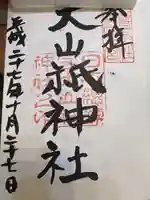 奉拝
大山祇神社
平成二十七年十月二十七日